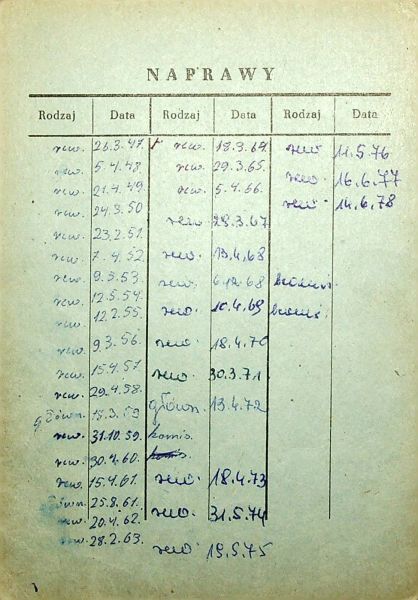 NAPRAWY
Rodzaj Data Rodzaj Data Rodzaj Data
rew. 26.3.47. rew. 18.3.64 rew 11.5.76
rew. 5.4.48. rew. 29.3.65. rew. 16.6.77
rew. 21.4.49. rew. 5.4.66. rew. 14.6.78
rew. 24.3.50 rew 28.3.67
rew. 23.2.51. rew. 13.4.68
rew. 7.4.52. rew. 6.12.68 komis.
rew. 9.3.53. rew. 10.4.69 komis.
rew. 12.5.54. rew. 18.4.70
rew. 12.2.55. rew. 30.3.71
rew. 9.3.56. główn. 13.4.72
rew. 15.4.57. rew. 18.4.73
rew. 29.4.58. rew. 31.5.74
główn. 15.3.59 rew. 19.5.75
rew. 31.10.59. komis.
rew. 30.4.60. komis.
rew. 15.4.61.
główn. 25.8.61.
rew. 20.4.62.
rew. 28.2.63.